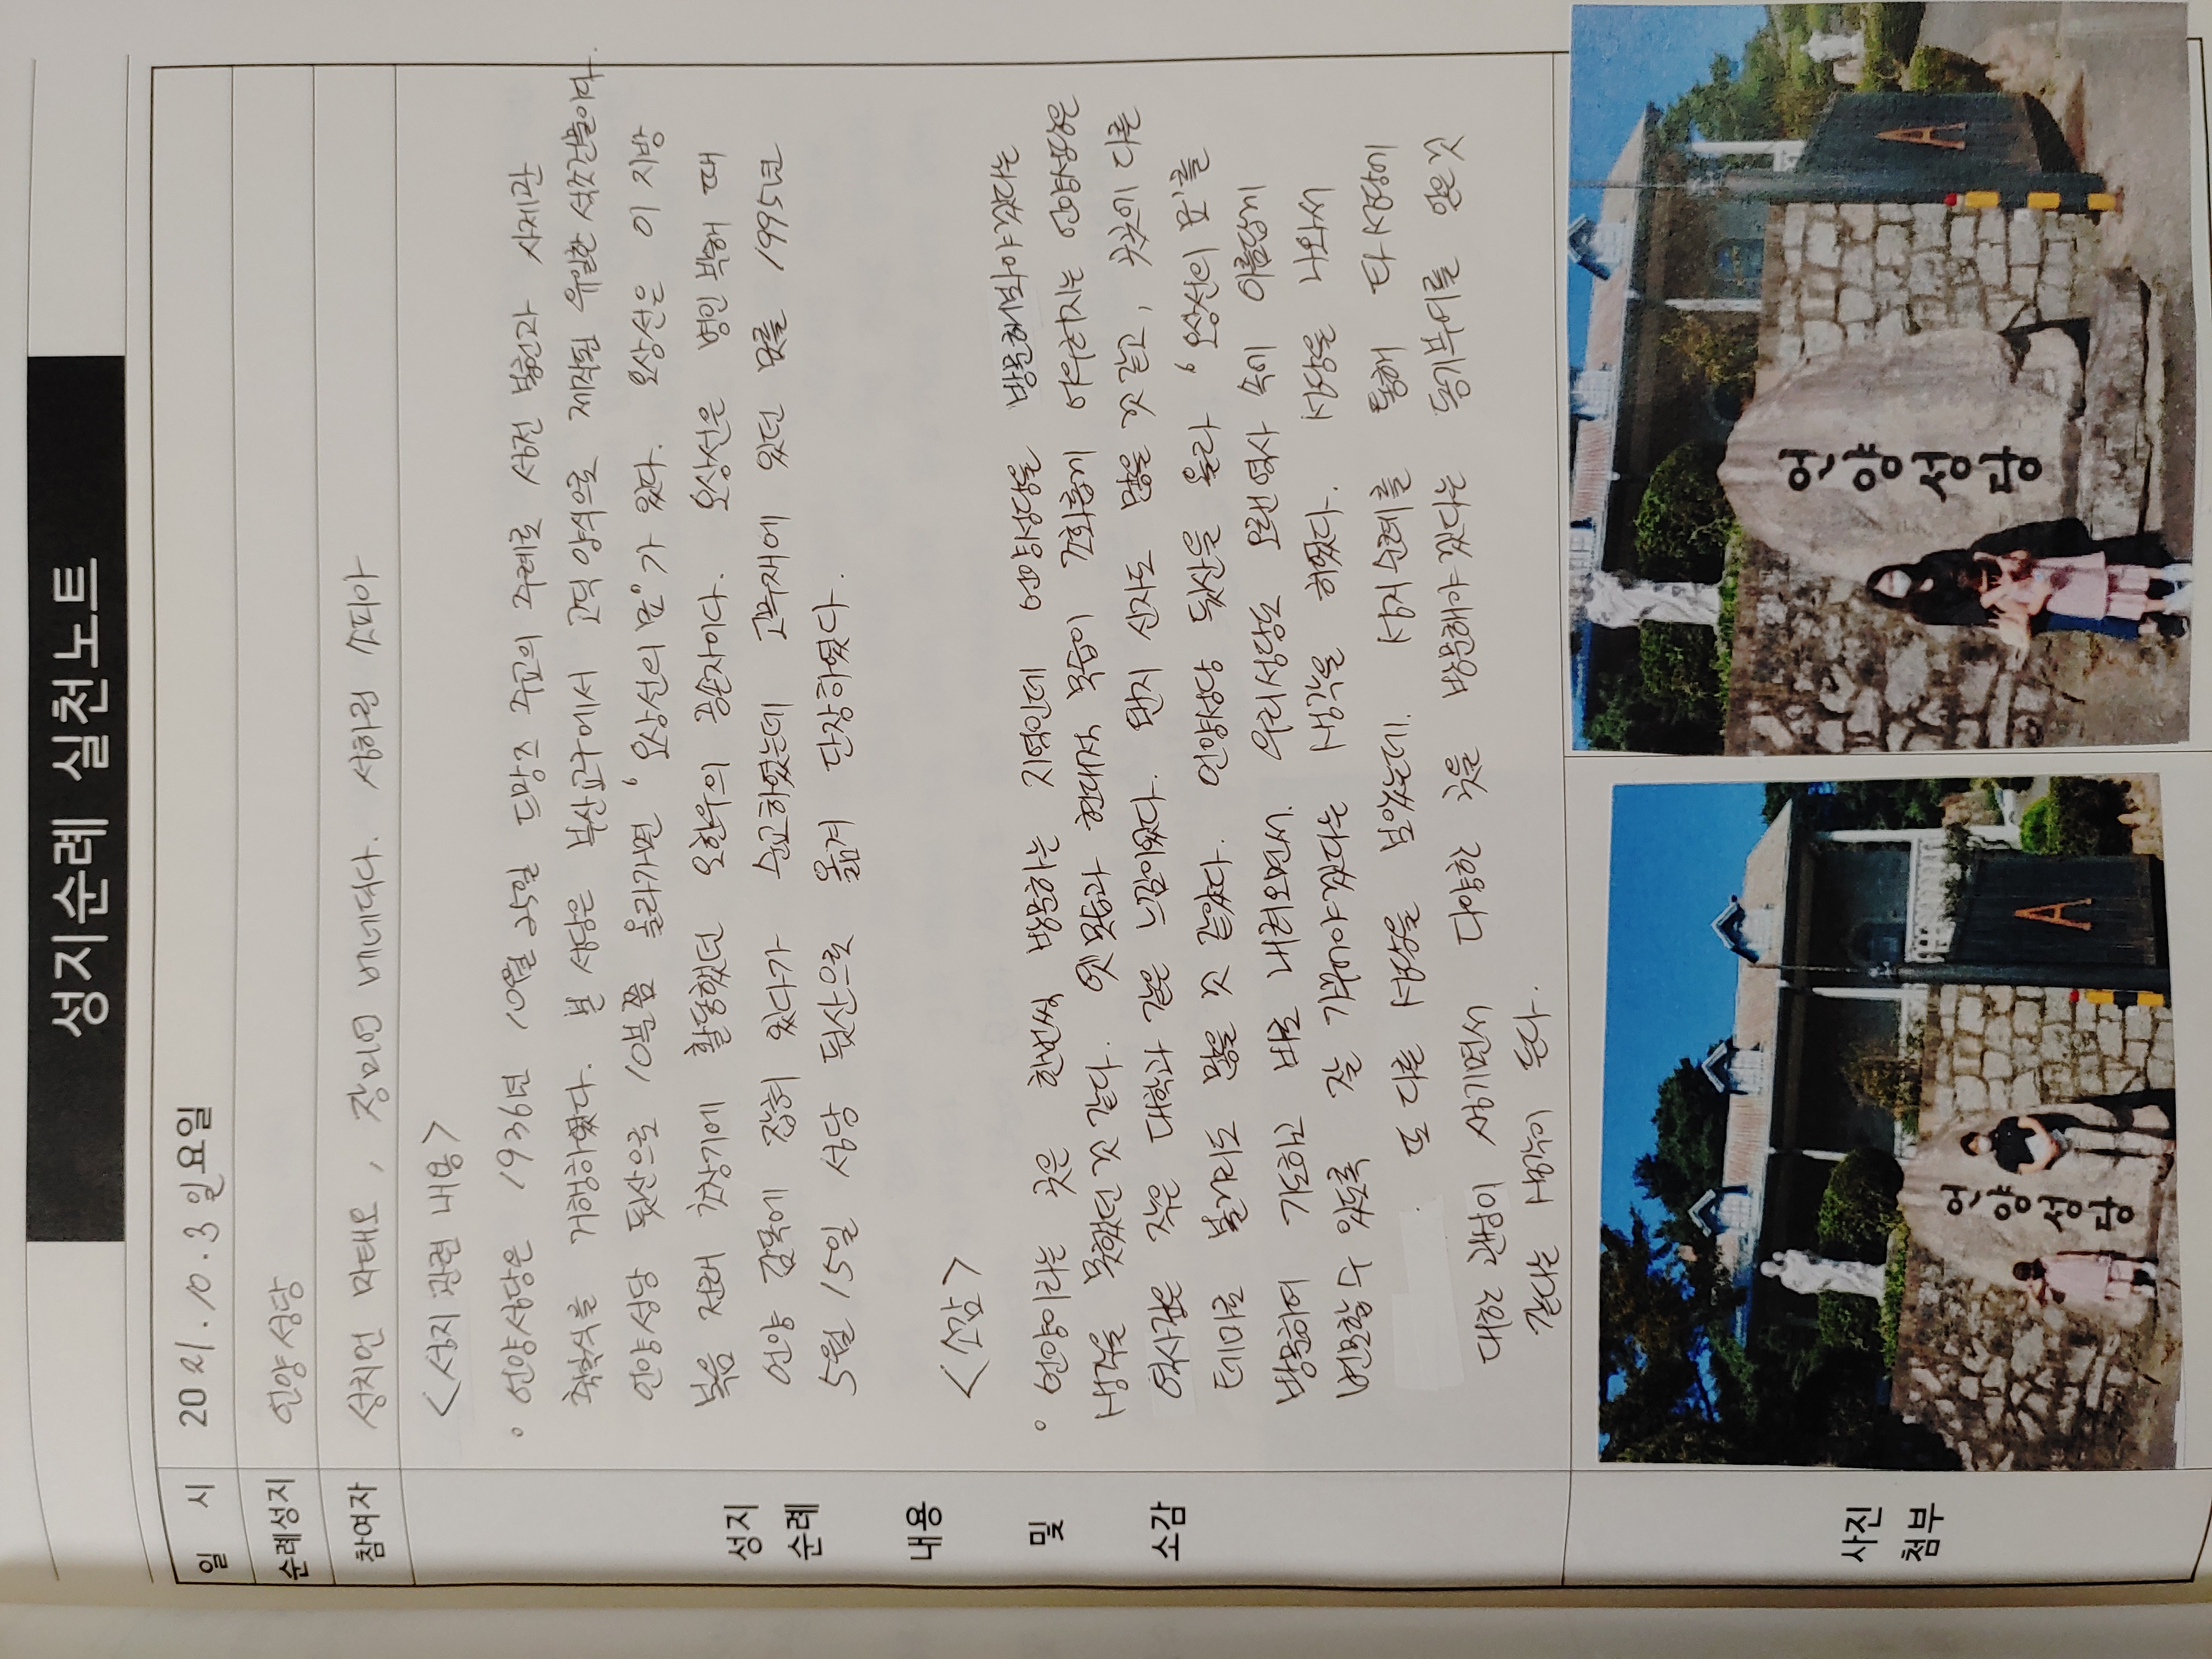 성지순례 실천노트
일 시 2021. 10. 3 일요일
순례성지 언양성당
참여자 성치언 마태오, 장미연 베네딕다. 성하린 소피아
<성지 관련 내용>
◦ 언양성당은 1936년 10월 25일 드망즈 주교의 주례로 성전 봉헌과 사제관
축복식을 거행하였다. 본 성당은 부산교구에서 고딕 양식으로 제작된 유일한 석조건물이다.
언양성당 뒷산으로 10분쯤 올라가면 "오상선의 묘"가 있다. 오상선은 이 지방
복음 전래 초창기에 활동했던 오한우의 증손자이다. 오상선은 병인박해 때
언양 감옥에 잡혀 있다가 순교하였는데 고무재에 있던 묘를 1995년
5월 15일 성당 뒷산으로 옮겨 단장하였다.
성지
순례
내용
및
소감
<소감>
◦ 언양이라는 곳은 한번씩 방문하는 지역인데 언양성당을 방문해봐야겠다는
생각을 못했던 것 같다. 옛 모습과 현대적 모습이 조화롭게 어우러지는 언양성당은
역사깊은 작은 대학과 같은 느낌이었다. 왠지 신자도 많을 것 같고, 곳곳에 다른
테마로 볼거리도 많을 것 같았다. 언양성당 뒷산을 올라 '오상선의 묘'를
방문하여 기도하고 바로 내려오면서. 우리성당도 오랜역사 속에 아름답게
변모할 수 있도록 잘 가꾸어야겠다는 생각을 하였다. 성당을 나와서
또 다른 성당을 보았는데. 성지순례를 통해 타 성당에
대한 관심이 생기면서 다양한 곳을 방문해야겠다는 동기부여를 얻은것
같다는 생각이 든다.
사진
첨부
언양성당
A
언양성당
A